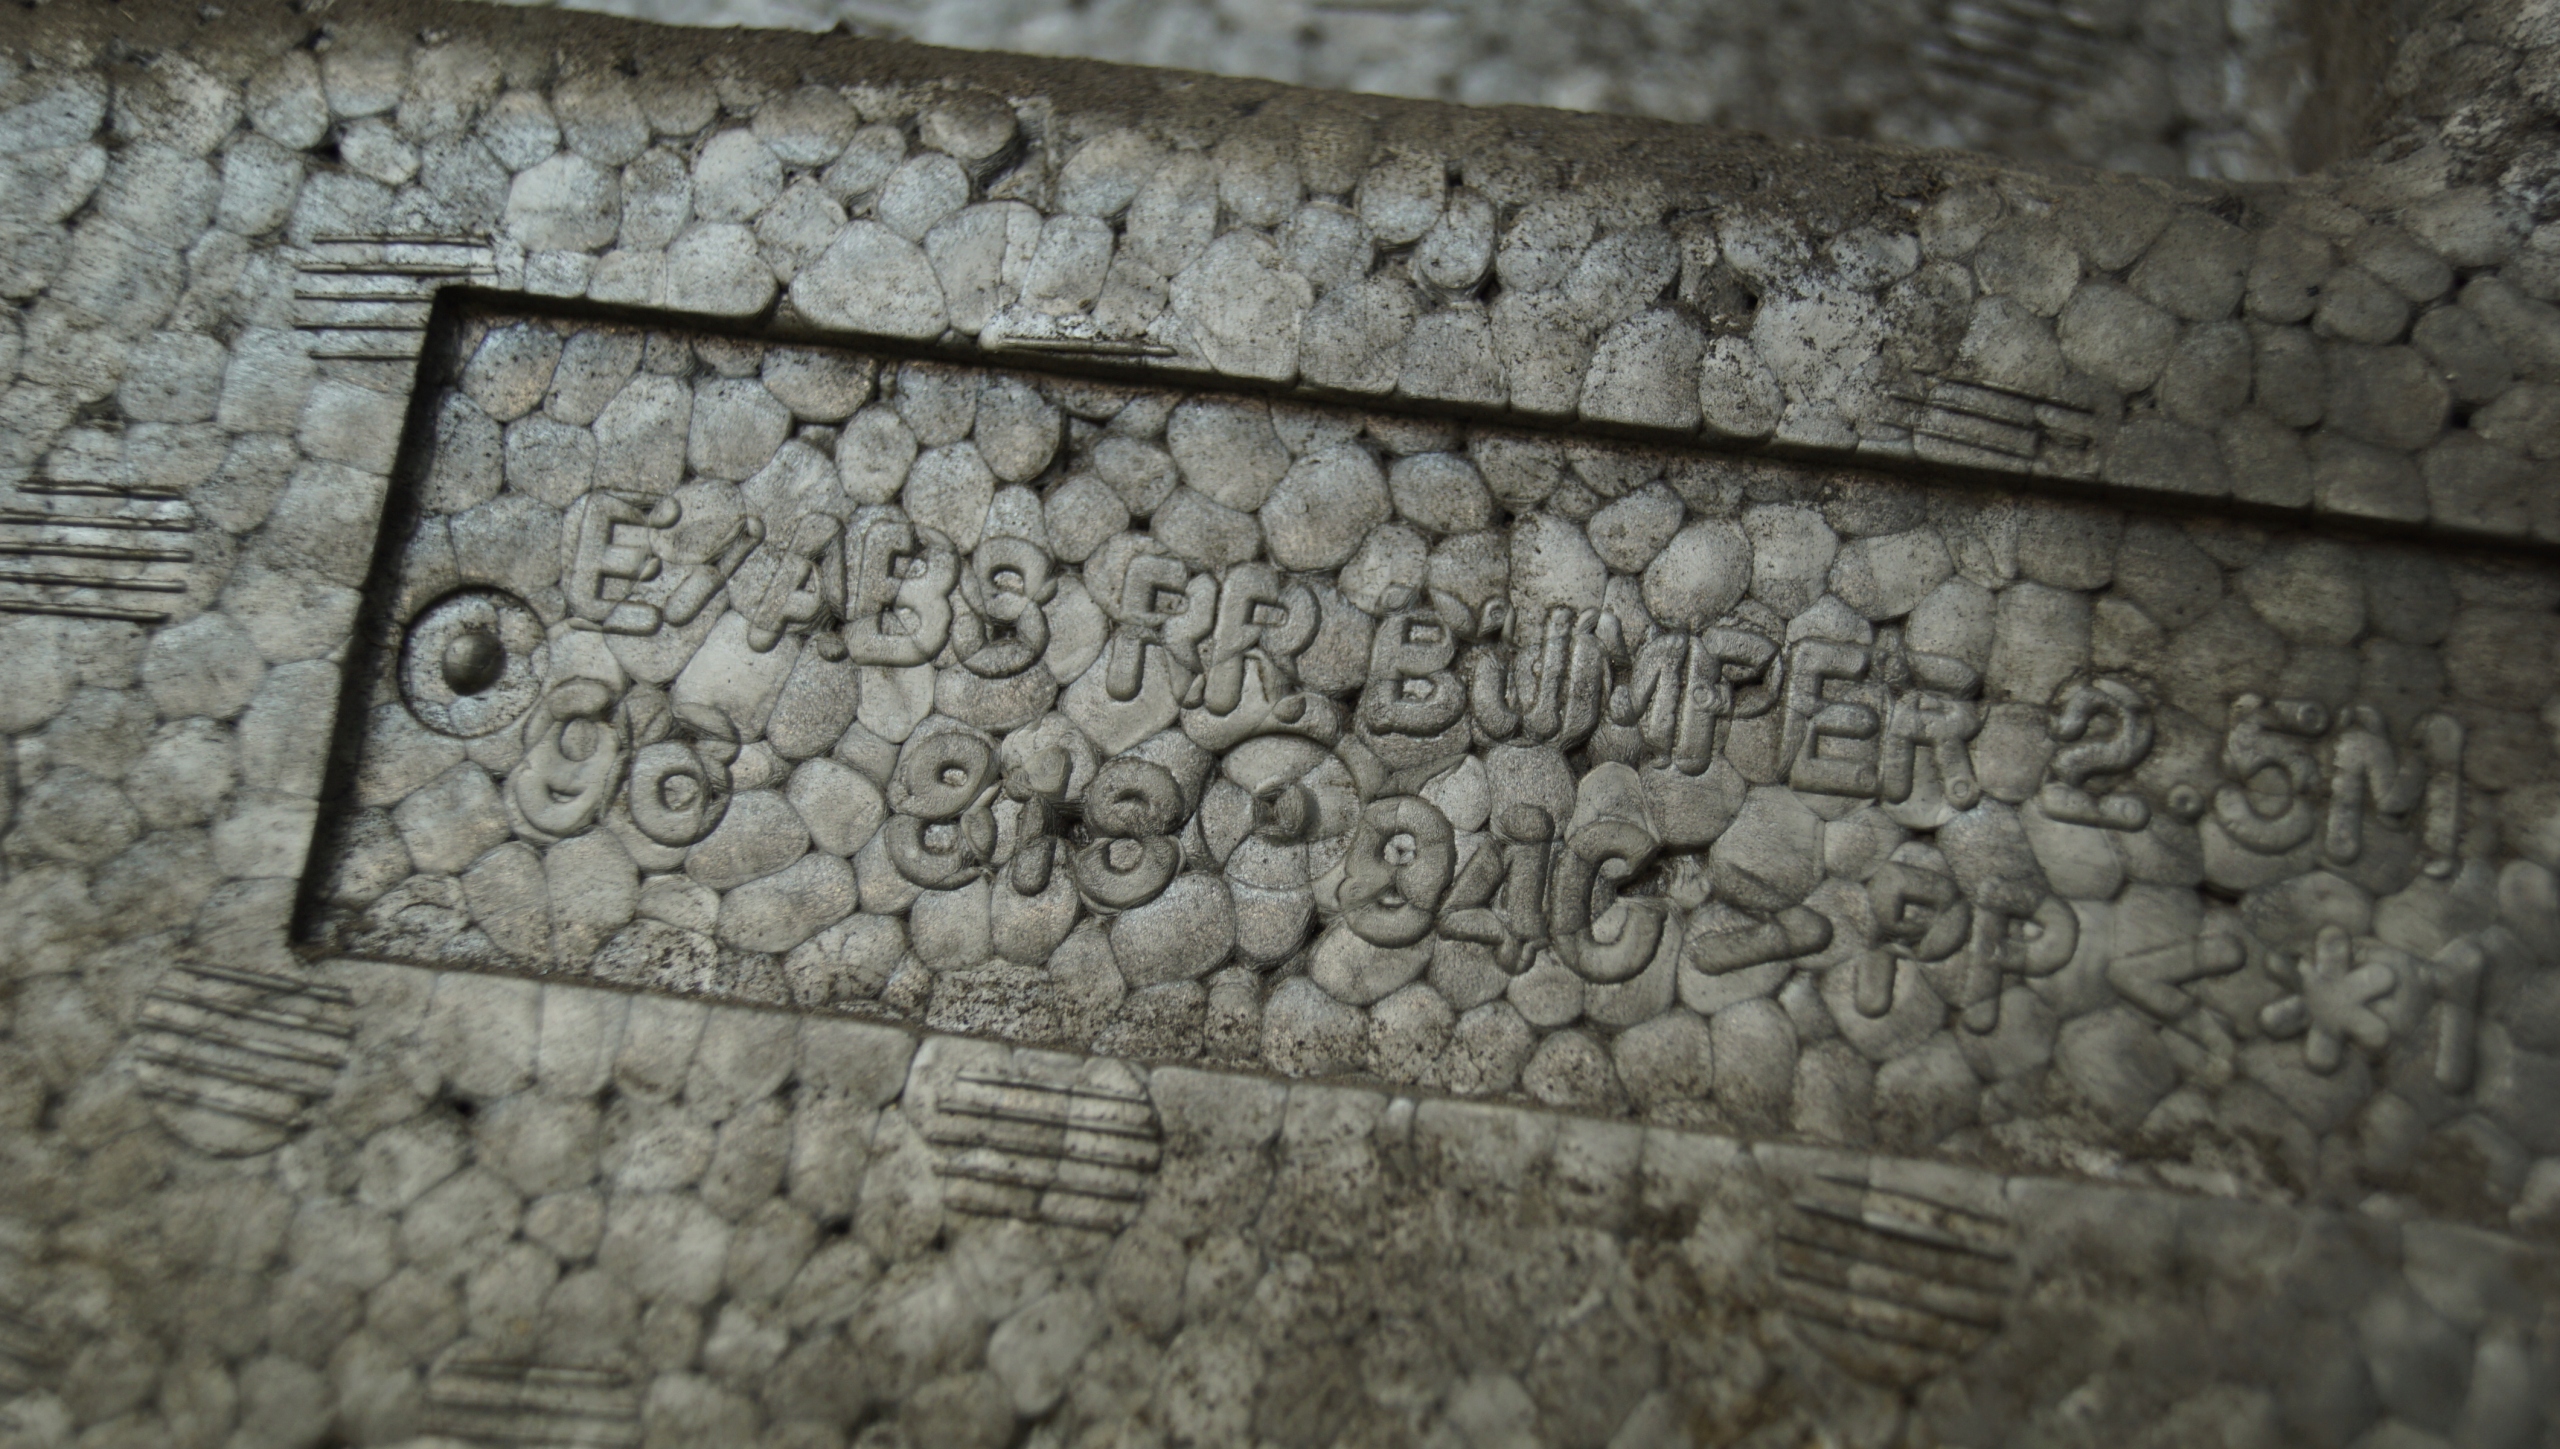 E/ABS RR BUMPER 2.5MI
96 818 841C >PP< *1